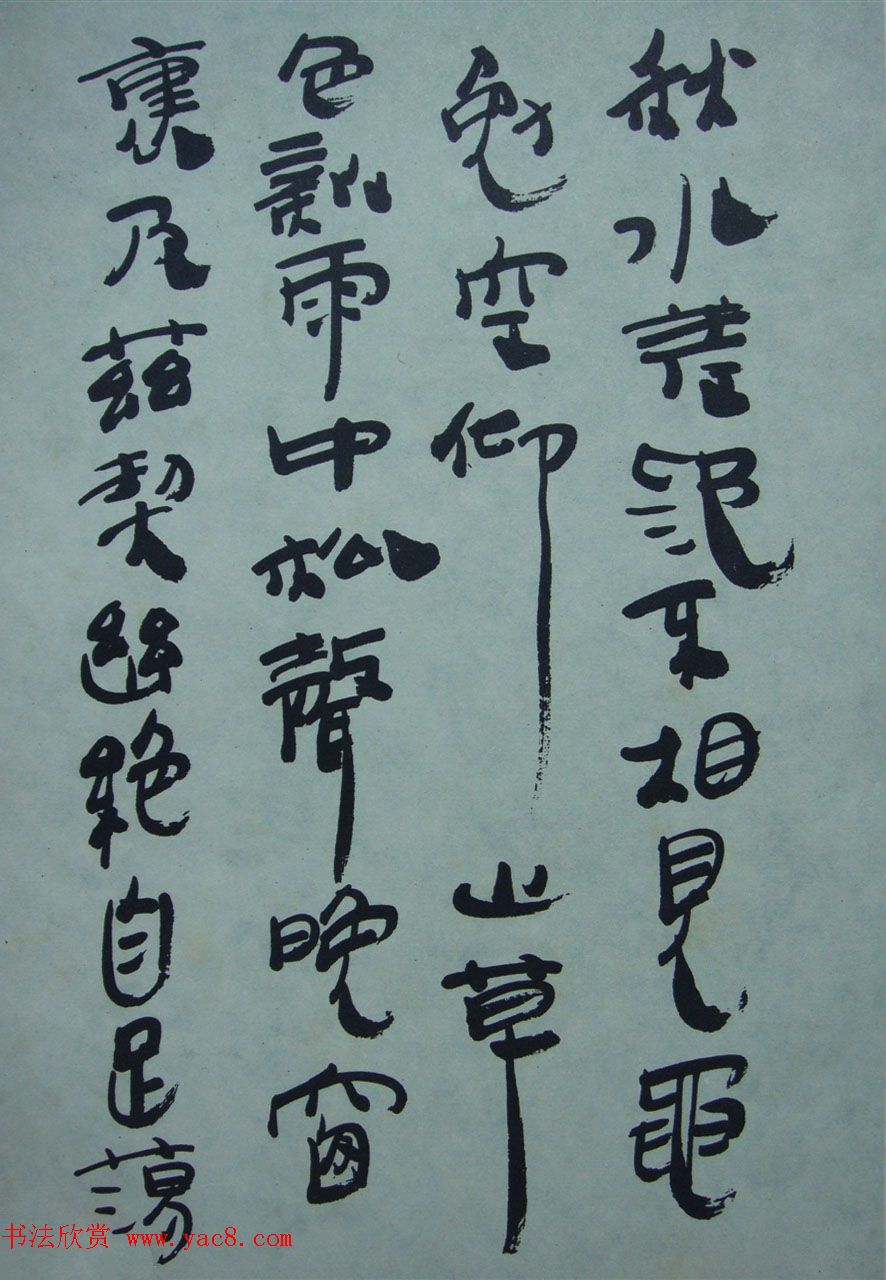 秋水差池不相見黽
勉空仰止草
色新雨中松聲晚窗
裏及茲契幽絶自足蕩
书法欣赏 www.yac8.com